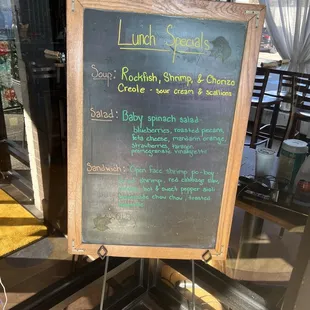 Lunch Specials
Soup: Rockfish, Shrimp, & Chorizo
Creole - sour cream & scallions
Salad: Baby spinach salad -
blueberries, roasted pecans,
feta cheese, mandarin orange,
pomegranate vinaigrette
Sandwich: Open face shrimp po-boy
shrimp, red cabbage slaw,
& sweet pepper aioli
chow chow, toasted